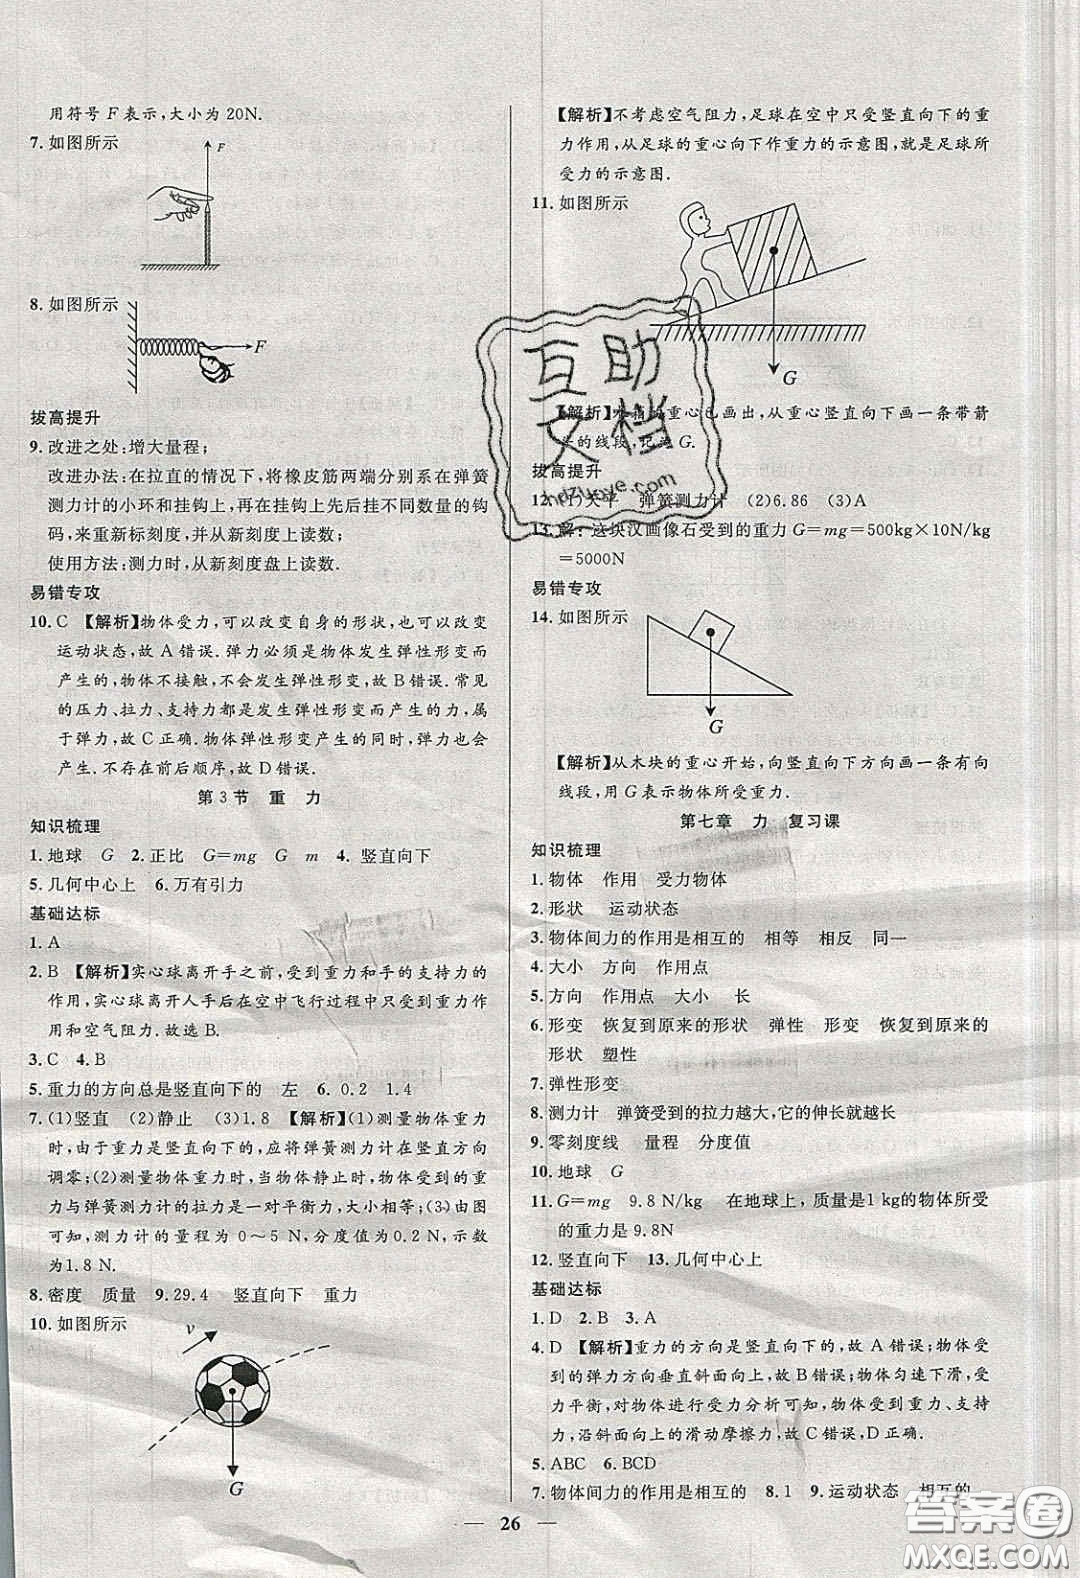 用符号 F 表示,大小为 20N.
7. 如图所示
F
8. 如图所示
F
拔高提升
9. 改进之处:增大量程;
改进办法:在拉直的情况下,将橡皮筋两端分别系在弹簧
测力计的小环和挂钩上,再在挂钩上先后挂不同数量的钩
码,来重新标刻度,并从新刻度上读数;
使用方法:测力时,从新刻度盘上读数.
易错专攻
10. C 【解析】物体受力,可以改变自身的形状,也可以改变
运动状态,故 A 错误. 弹力必须是物体发生弹性形变而
产生的,物体不接触,不会发生弹性形变,故 B 错误. 常见
的压力、拉力、支持力都是发生弹性形变而产生的力,属
于弹力,故 C 正确. 物体弹性形变产生的同时,弹力也会
产生. 不存在前后顺序,故 D 错误.
第 3 节 重 力
知识梳理
1. 地球 G 2. 正比 G=mg G m 4. 竖直向下
5. 几何中心上 6. 万有引力
基础达标
1. A
2. B 【解析】实心球离开手之前,受到重力和手的支持力的
作用,实心球离开人手后在空中飞行过程中只受到重力作
用和空气阻力. 故选 B.
3. C 4. B
5. 重力的方向总是竖直向下的 左 6. 0.2 1.4
7. (1)竖直 (2)静止 (3)1.8 【解析】(1)测量物体重力
时,由于重力是竖直向下的,应将弹簧测力计在竖直方向
调零;(2)测量物体重力时,当物体静止时,物体受到的重
力与弹簧测力计的拉力是一对平衡力,大小相等;(3)由图
可知,测力计的量程为 0～5 N,分度值为 0.2 N,示数
为 1.8 N.
8. 密度 质量 9. 29.4 竖直向下 重力
10. 如图所示
v
G
【解析】不考虑空气阻力,足球在空中只受竖直向下的重
力作用,从足球的重心向下作重力的示意图,就是足球所
受力的示意图.
11. 如图所示
G
【解析】木箱的重心已画出,从重心竖直向下画一条带箭
头的线段,记为 G.
拔高提升
12. (1)天平 弹簧测力计 (2)6.86 (3)A
13. 解:这块汉画像石受到的重力 G=mg=500kg×10N/kg
=5000N
易错专攻
14. 如图所示
G
【解析】从木块的重心开始,向竖直向下方向画一条有向
线段,用 G 表示物体所受重力.
第七章 力 复习课
知识梳理
1. 物体 作用 受力物体
2. 形状 运动状态
3. 物体间力的作用是相互的 相等 相反 同一
4. 大小 方向 作用点
5. 方向 作用点 大小 长
6. 形变 恢复到原来的形状 弹性 形变 恢复到原来的
形状 塑性
7. 弹性形变
8. 测力计 弹簧受到的拉力越大,它的伸长就越长
9. 零刻度线 量程 分度值
10. 地球 G
11. G=mg 9.8 N/kg 在地球上,质量是 1 kg的物体所受
的重力是 9.8N
12. 竖直向下 13. 几何中心上
基础达标
1. D 2. B 3. A
4. D 【解析】重力的方向是竖直向下的,故 A 错误;物体受
到的弹力方向垂直斜面向上,故 B 错误;物体匀速下滑,受
力平衡,对物体进行受力分析可知,物体受到重力、支持
力,沿斜面向上的滑动摩擦力,故 C 错误,D 正确.
5. ABC 6. BCD
7. 物体间力的作用是相互的 8. 1 9. 运动状态 相互的
26
互助
文档
hdzuoye.com
答案圈
MXQE.COM